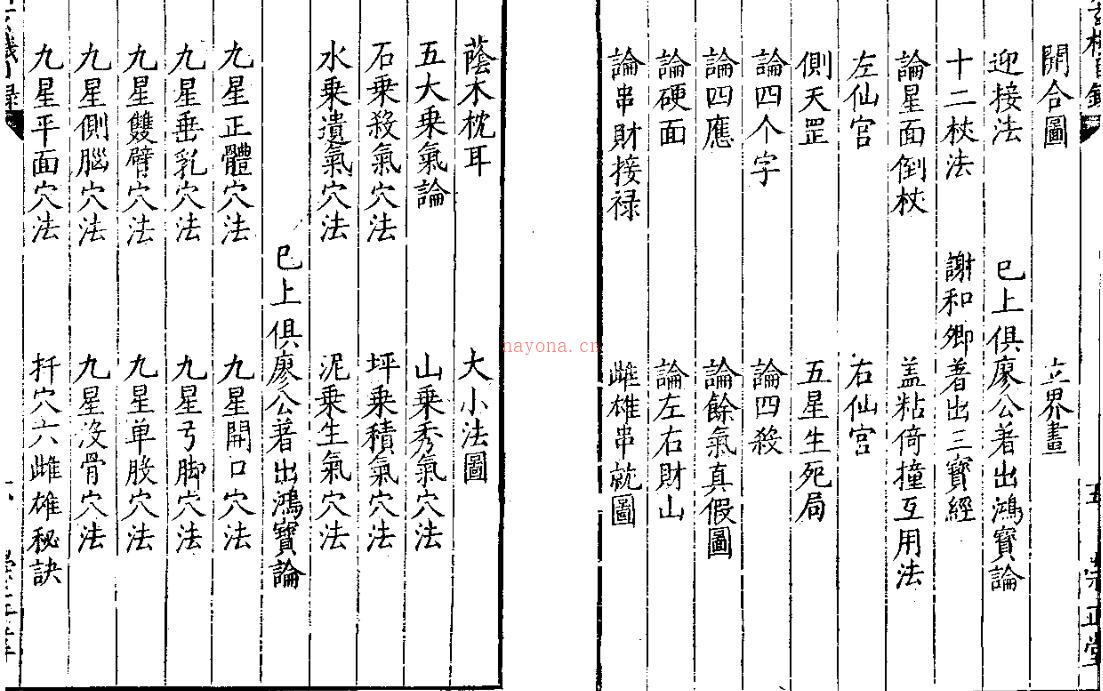 開合圖　立界畫
迎接法　已上俱廖公著出鴻寶論
十二杖法　謝和卿著出三寶經
論星面倒杖　盖粘倚撞互用法
左仙宫　右仙宮
側天罡　五星生死局
論四个字　論四殺
論四應　論餘氣真假圖
論硬面　論左右財山
論串財接禄　雌雄串就圖
蔭木枕耳　大小法圖
五大乗氣論　山乗秀氣穴法
石乗殺氣穴法　坪乗積氣穴法
水乗遺氣穴法　泥乗生氣穴法
已上俱廖公著出鴻寶論
九星正體穴法　九星開口穴法
九星垂乳穴法　九星弓脚穴法
九星雙臂穴法　九星单股穴法
九星側腦穴法　九星沒骨穴法
九星平面穴法　扦穴六雌雄秘訣
崇正堂
nayona.cn